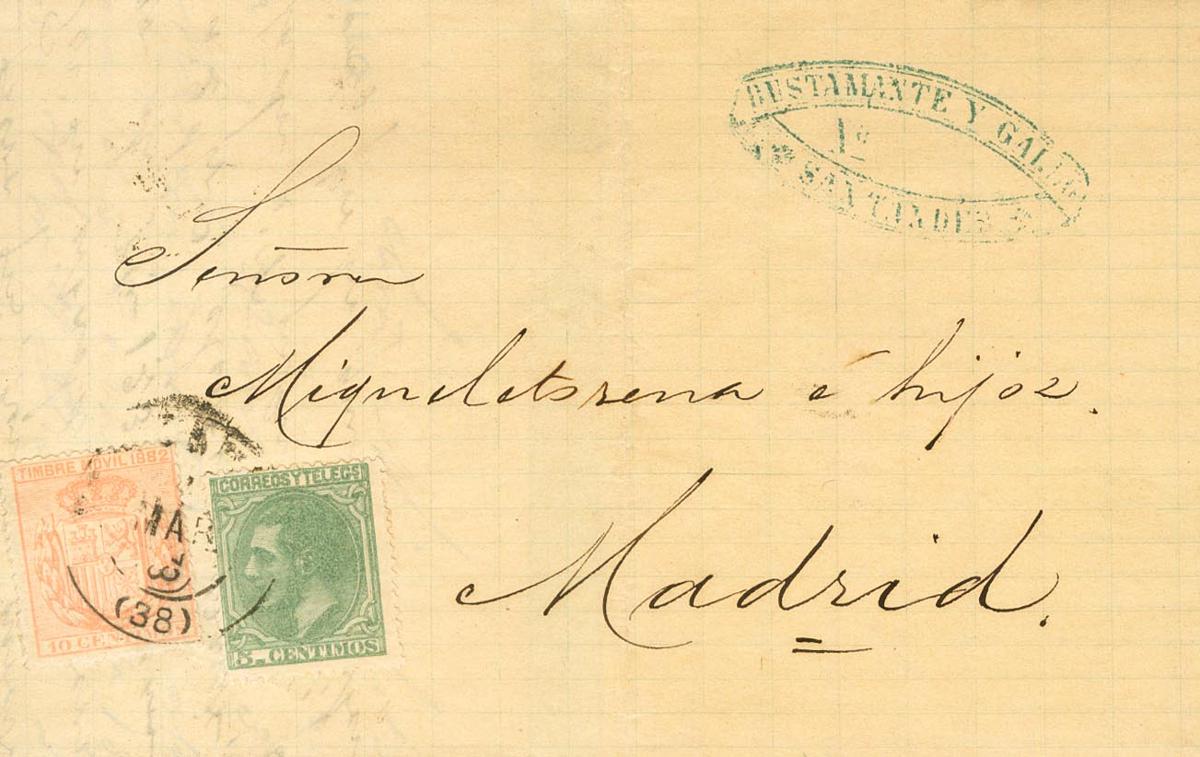 BUSTAMANTE Y GALL
1º
SANTANDER
Señores
Migueletorena é hijos.
Madrid.
TIMBRE MOVIL 1882
10 CEN
CORREOS Y TELEGS
5. CENTIMOS
MAR
(38)